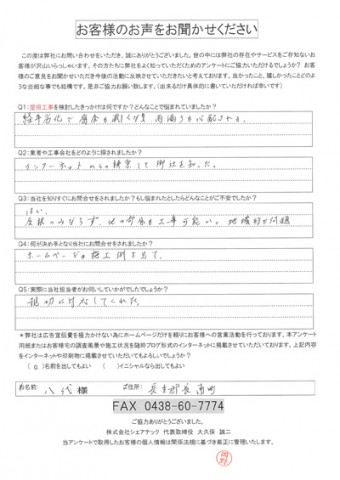 お客様のお声をお聞かせください
この度は弊社にお問い合わせをいただき、誠にありがとうございました。世の中には弊社の存在やサービスをご存知ないお客様が沢山いらっしゃいます。その方たちに弊社をよく知っていただくためのアンケートにご協力いただけるでしょうか？ お客様のご意見をお聞かせいただき今後の活動に反映させていただきたいと考えております。良かったこと、嬉しかったことどのような些細な事でも結構です。是非ご協力お願い致します。（出来るだけ具体的に書いていただければ幸いです）
Q1:屋根工事を検討したきっかけは何ですか？どんなことで悩まれていましたか？
Q2:業者や工事会社をどのように探されましたか？
インターネットの検索して御社を知った。
Q3:当社を知りすぐにお問合せをされましたか？もし悩まれたとしたらどんなことがご不安でしたか？
はい。
Q4:何が決め手となり当社にお問合せをされましたか？
ホームページの施工例を見て。
Q5:実際に当社担当者がお伺いしていかがでしたでしょうか？
親切に対応してくれた。
＊弊社は広告宣伝費を極力かけない為にホームページだけを頼りにお客様への営業活動を行っております。本アンケート用紙またはお客様宅の調査風景や施工状況を随時ブログ形式のインターネットに掲載させていただいております。上記内容をインターネットや印刷物に掲載させていただいてもよろしいでしょうか？
（ o ）名前を出してもよい （ ）イニシャルなら出してもよい
お名前: 八代 様 ご住所: 長生郡長南町
FAX 0438-60-7774
ご協力ありがとうございました。
株式会社シェアテック 代表取締役 大久保 誠二
当アンケートで取得したお客様の個人情報は関係法規に基づき厳正に管理いたします。